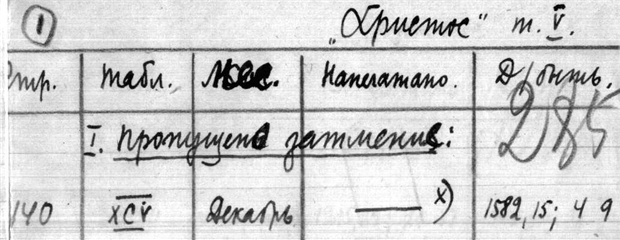 1 „Христос" т. V.
Стр. табл. Мес. Напечатано. Д/быть.
285
I. Пропущено затмение:
140 XCV Декабрь — x) 1582, 15; 4 9